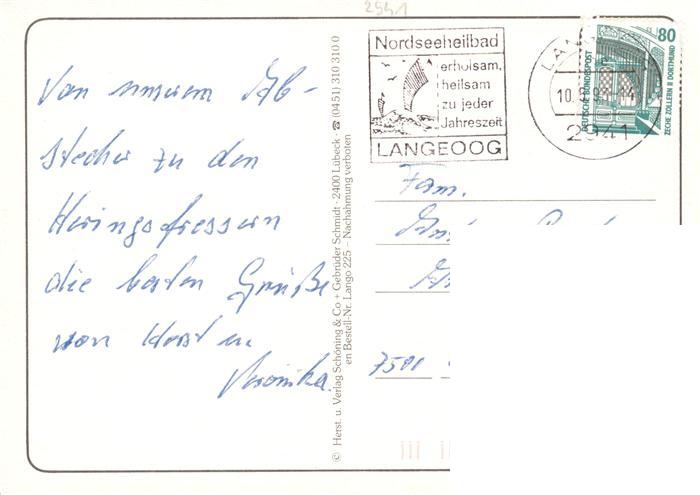 2941
Nordseeheilbad
erholsam,
heilsam
zu jeder
Jahreszeit
LANGEOOG
10.
2941
80
DEUTSCHE BUNDESPOST
ZECHE ZOLLERN II DORTMUND
Von unserem Ab-
stecher zu den
Heringsfressern
die besten Grüße
von Horst u.
Veronika.
© Herst. u. Verlag Schöning & Co + Gebrüder Schmidt · 2400 Lübeck · ☎ (0451) 310 310 0
en Bestell-Nr. Lango 225 – Nachahmung verboten
Fam.